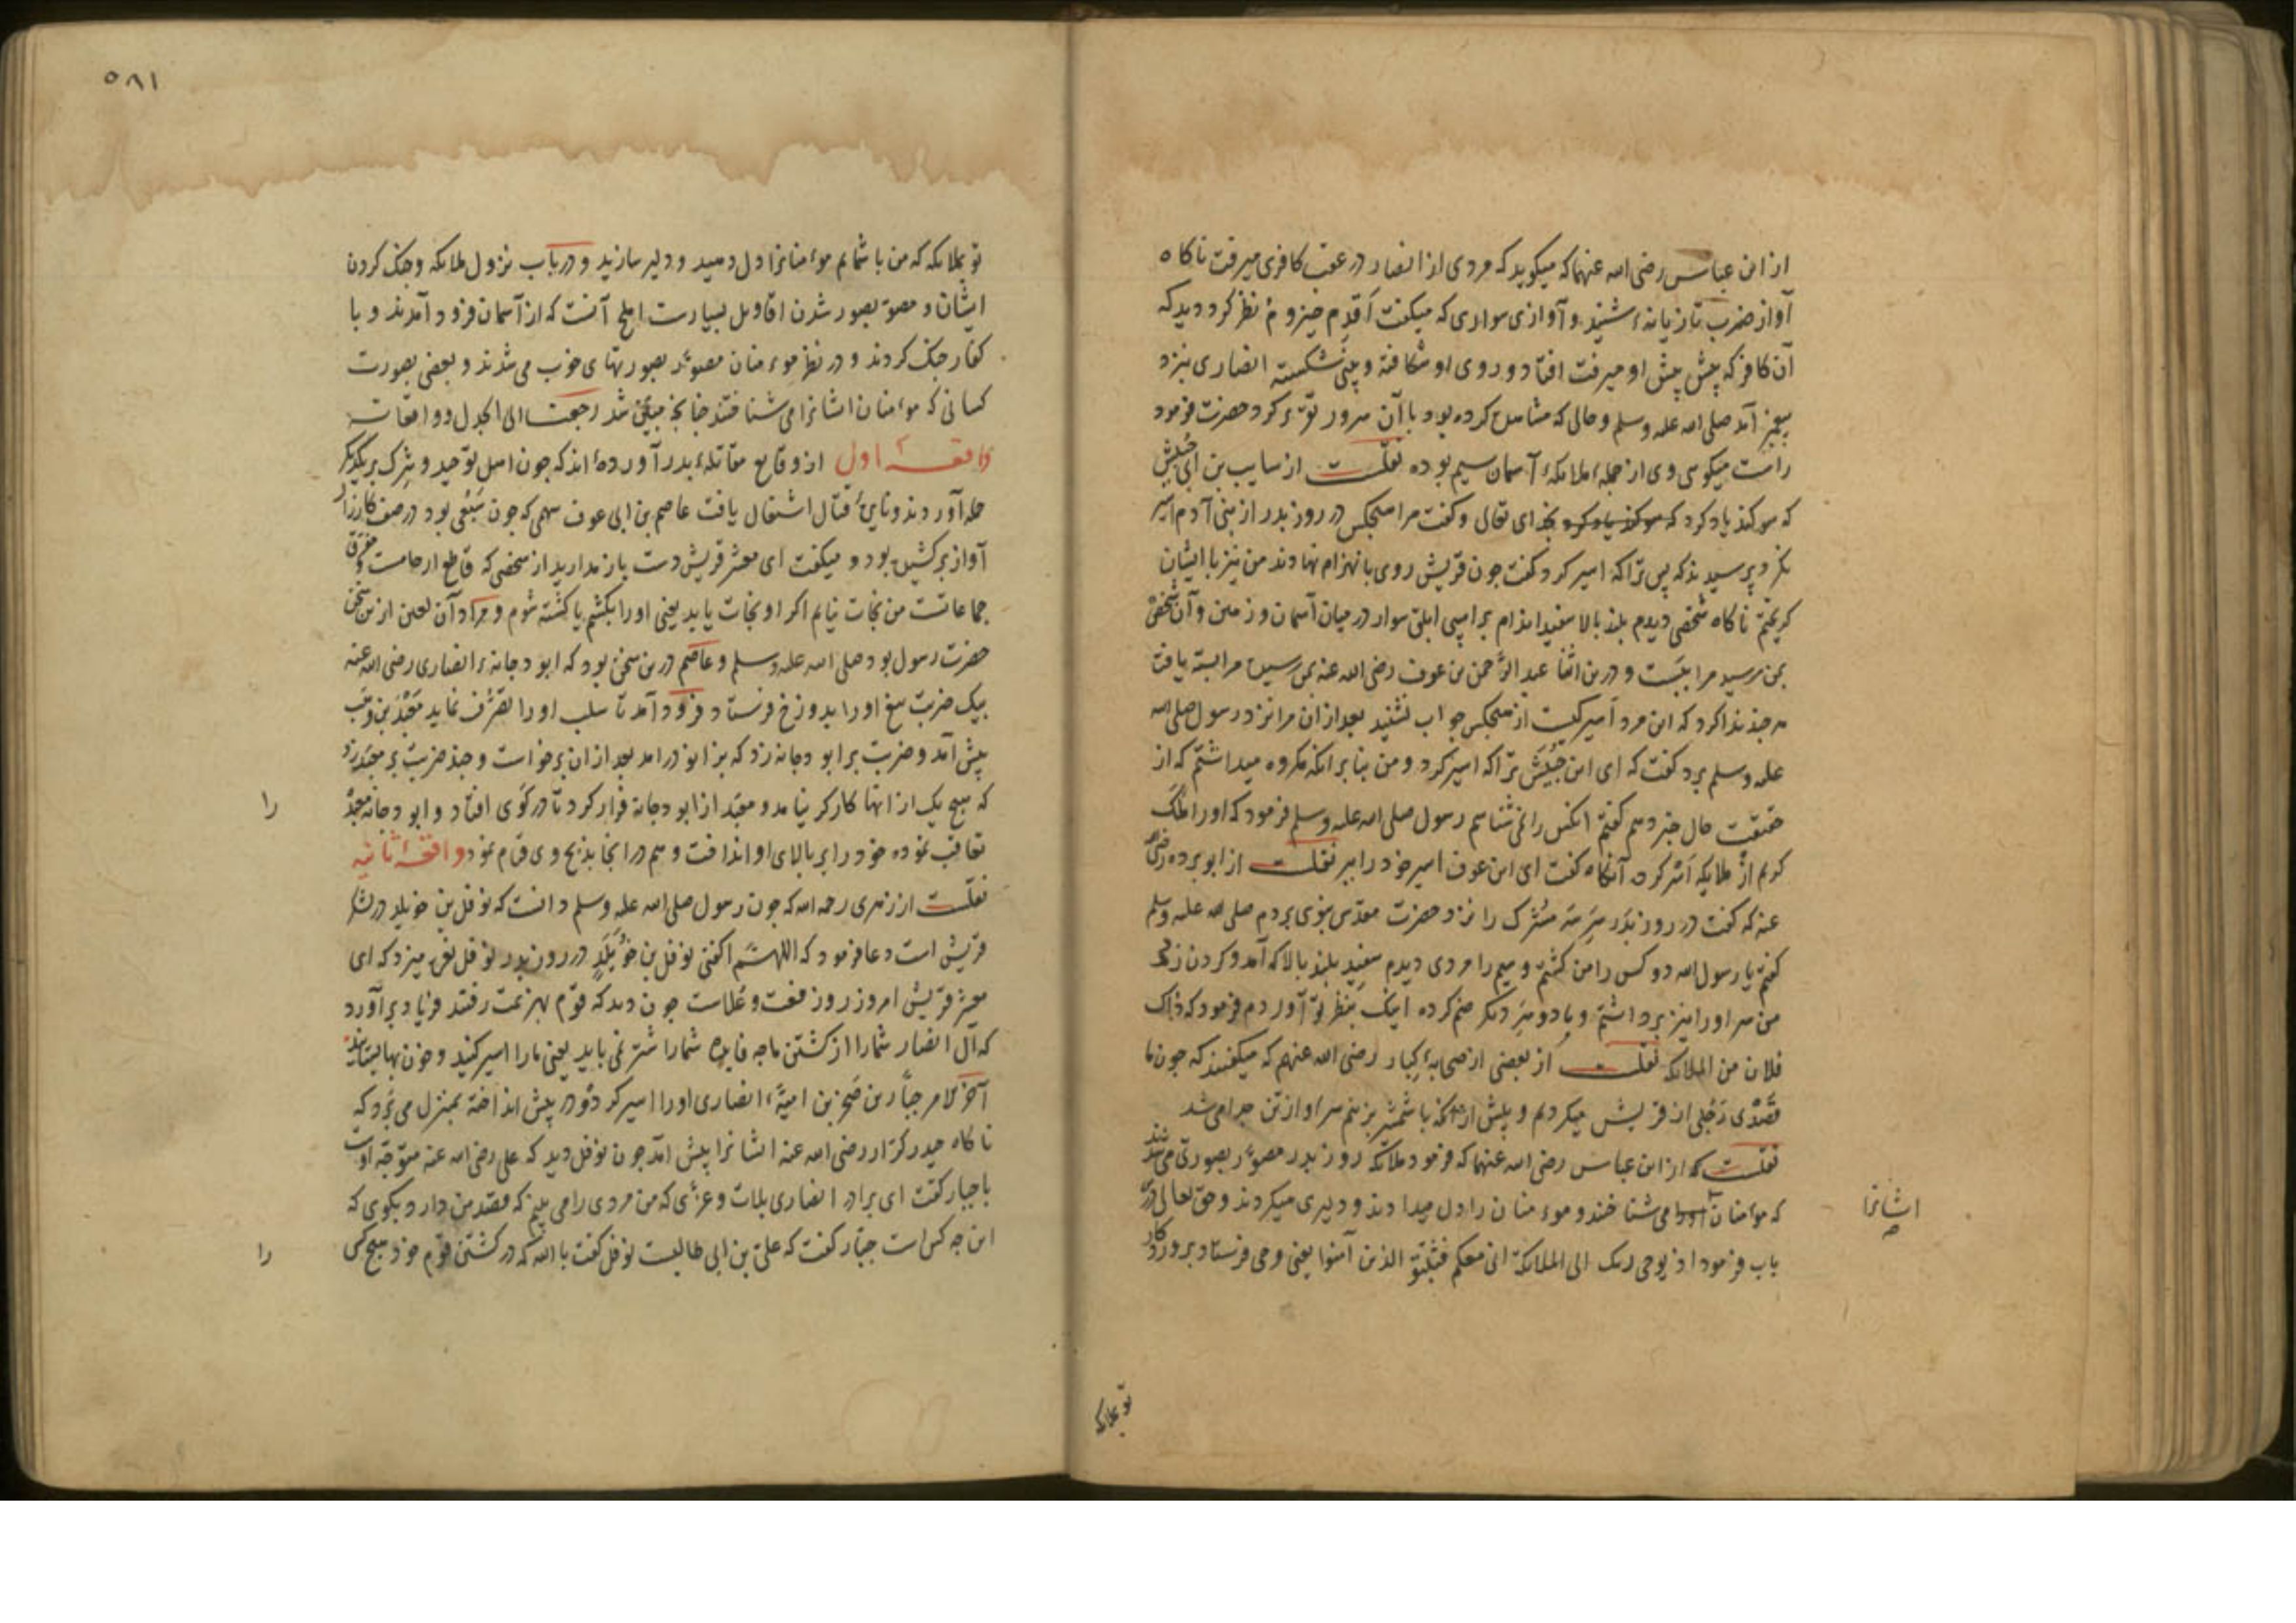 از ابن عباس رضی الله عنهما که میکوید که مردی از انصار در عقب کافری میرفت ناکاه
آواز ضرب تازیانهٔ شنید و آوازی سواری که میکفت اَقدِم حیزومُ نظر کرد دید که
آن کافر که پیش پیش او میرفت افتاد و روی او شکافته و بینی شکسته انصاری نزد
پیغمبر آمد صلی الله علیه وسلم و حالی که مشاهده کرده بود با آن سرور تقریر کرد حضرت فرمود
راست میکویی وی از جملهٔ ملایکهٔ آسمان سیم بوده نقلست از سایب بن ابی حُبَیش
که سوکند یاد کرد که سوکند یاد کرد بخدای تعالی و کفت مرا هیچکس در روز بدر از بنی آدم اسیر
نکرد پرسیدند که پس ترا که اسیر کرد کفت چون قریش روی بانهزام نهادند من نیز با ایشان
کریختم ناکاه شخصی دیدم بلند بالا سفید اندام بر اسپی ابلق سوار در میان آسمان و زمین و آن شخص
بمن رسید مرا ببست و درین اثنا عبد الرحمن بن عوف رضی الله عنه بمن رسیده مرا بسته یافت
هر چند ندا کرد که این مرد اسیر کیست از هیچکس جواب نشنید بعد از ان مرا نزد رسول صلی الله
علیه وسلم برد کفت که ای ابن حُبَیش ترا که اسیر کرد و من بنا بر انکه مکروه میداشتم که از
حقیقت حال خبر دهم کفتم انکس را نمی شناسم رسول صلی الله علیه وسلم فرمود که او را مَلَک
کریم از ملایکه اَسر کرد آنکاه کفت ای ابن عوف اسیر خود را ببر نقلست از ابو برده رضی
عنه که کفت در روز بدر سر سه مشرک را نزد حضرت مقدس نبوی بردم صلی الله علیه وسلم
کفتم یا رسول الله دو کس را من کشتم و سیم را مردی دیدم سفید بلند بالا که آمد و کردن زد
من سر او را نیز برداشتم و با دو سَرِ دیکر ضم کرده اینک بنظر تو آوردم فرمود که ذاک
فلان من الملایکه نقلست از بعضی از صحابهٔ کبار رضی الله عنهم که میکفتند که چون ما
قصدی رَجُلی از قریش میکردیم و پیش از انکه با شمشیر بزنیم سر او از تن جدا می شد
نقلست که از ابن عباس رضی الله عنهما که فرمود ملایکه روز بدر مصوّر بصورتی می شدند
که موءمنان او را می شناختند و موءمنان را دل میدادند و دلیری میکردند و حق تعالی درین
باب فرمود اذ یوحی ربک الی الملایکة انی معکم فثبّتوا الذین آمنوا یعنی وحی فرستاد پروردکار
ایشانرا
صح
تو بملایکه
۵۸۱
تو بملایکه که من با شمایم موءمنانرا دل دهید و دلیر سازید و در باب نزول ملایکه و جنک کردن
ایشان و مصور بصور شدن اقاویل بسیارست اصح آنست که از آسمان فرود آمدند و با
کفار جنک کردند و در نظر موءمنان مصوّر بصورتهای خوب می شدند و بعضی بصورت
کسانی که موءمنان ایشانرا می شناختند چنانچه مبیّن شد رجعت الی الجدل و واقعات
واقعهٔ اول از وقایع مقاتلهٔ بدر آورده‌اند که چون اهل توحید و شرک بر یکدیکر
حمله آوردند و نایرهٔ قتال اشتعال یافت عاصم بن ابی عوف سهمی که چون سَبُعی بود در صف کارزار
آواز برکشیده بود و میکفت ای معشر قریش دست باز ندارید از شخصی که قاطع ارحامست و مفرق
جماعاتست من نجات نیابم اکر او نجات یابد یعنی او را بکشم یا کشته شوم و مراد آن لعین ازین سخن
حضرت رسول بود صلی الله علیه وسلم و عاصم درین سخن بود که ابو دجانهٔ انصاری رضی الله عنه
بیک ضربت تیغ او را بدوزخ فرستاد و فرود آمد تا سلب او را تصرف نماید مَعْبَد بن وَهَب
پیش آمد و ضربت بر ابو دجانه زد که بزانو در امد بعد از ان برخواست و چند ضربت بر معبد زد
که هیچ یک از انها کارکر نیامد و معبد از ابو دجانه فرار کرد تا در کَوی افتاد و ابو دجانه معبد
را
تعاقب نموده خود را بر بالای او انداخت و هم در انجا بذبح وی قیام نمود واقعهٔ ثانیه
نقلست از زهری رحمه الله که چون رسول صلی الله علیه وسلم دانست که نوفل بن خویلد در لشکر
قریش است دعا فرمود که اللهمّ اکفنی نوفل بن خُوَیلَدٍ در روز بدر نوفل نعره میزد که ای
معشر قریش امروز روز رفعت و عُلاست چون دید که قوم بهزیمت رفتند فریاد برآورد
که آل انصار شمارا از کشتن ما چه فایده شمارا شتر نمی باید یعنی ما را اسیر کنید و خون بها بستانید
آخر الامر جبّار بن صَخر بن امیهٔ انصاری او را اسیر کرد و در پیش انداخته بمنزل می برد که
ناکاه حیدر کرار رضی الله عنه ایشانرا پیش آمد چون نوفل دید که علی رضی الله عنه متوجه اوست
با جبار کفت ای برادر انصاری بلات و عزّی که من مردی را می بینم که قصد من دارد بکوی که
این چه کس است جبّار کفت که علی بن ابی طالبست نوفل کفت بالله که در کشتن قوم خود هیچ کس
را